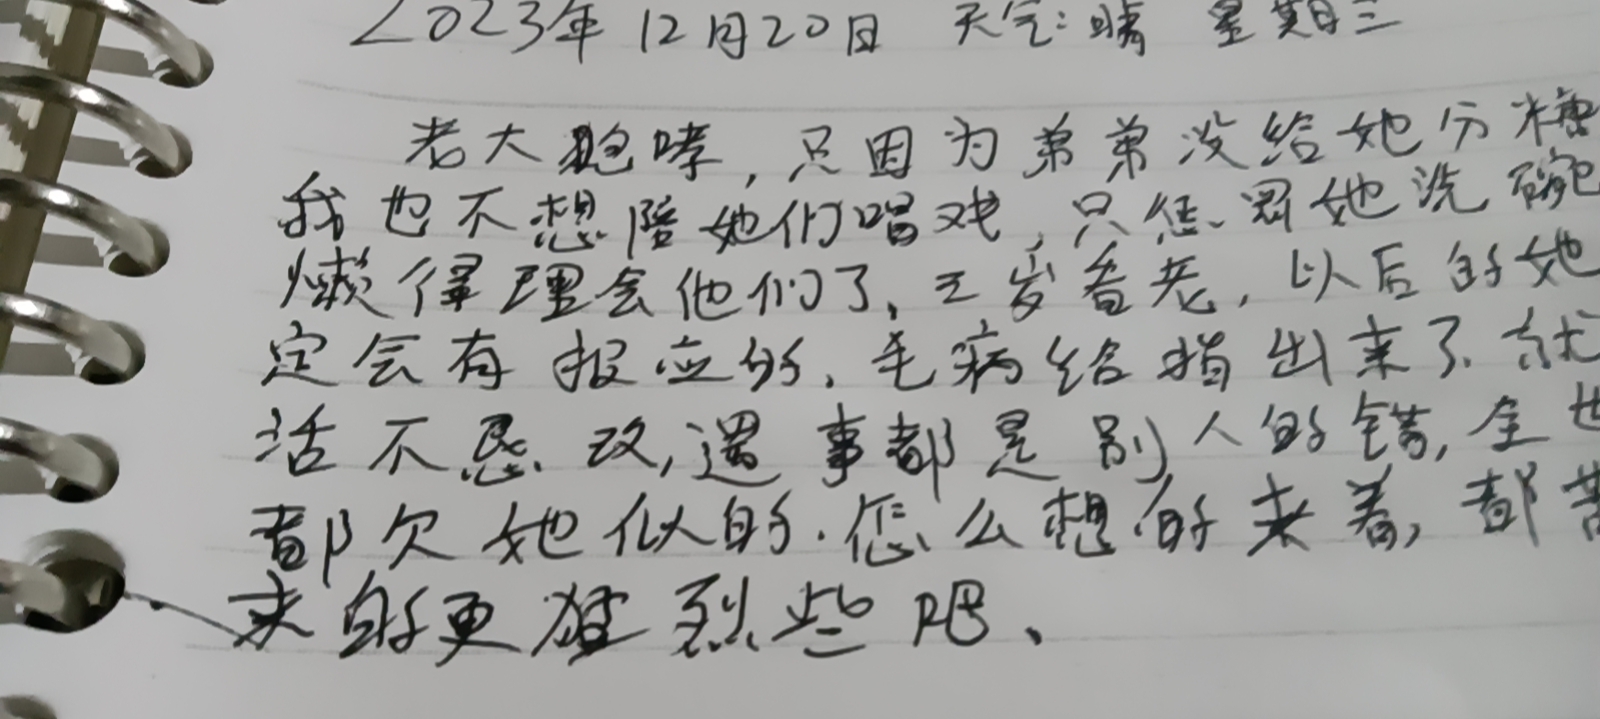 2023年12月20日 天气:晴 星期三
老大咆哮,只因为弟弟没给她分糖
我也不想陪她们唱戏,只惩罚她洗碗
懒得理会他们了,三岁看老,以后的她
定会有报应的,毛病给指出来了,就
活不愿改,遇事都是别人的错,全世
都欠她似的.怎么想的来着,都
来的更猛烈些吧、